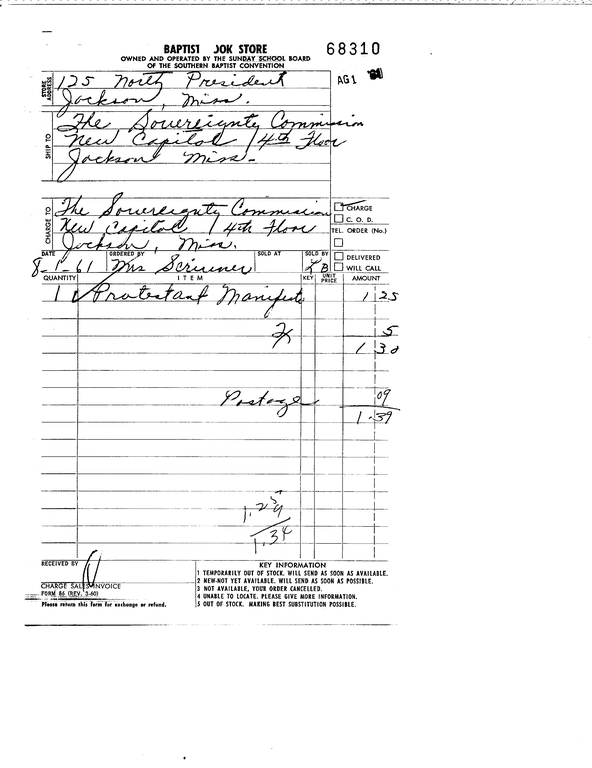 BAPTIST OK STORE
68310
OWNED AND OPERATED BY THE SUNDAY SCHOOL BOARD
OF THE SOUTHERN BAPTIST CONVENTION
AG1
STORE ADDRESS
125 North President
Jackson, Miss.
SHIP TO
The Sovereignty Commission
New Capitol / 4th Floor
Jackson Miss-
CHARGE TO
The Sovereignty Commission
New Capitol / 4th Floor
Jackson, Miss.
CHARGE
C. O. D.
TEL. ORDER (No.)
DELIVERED
WILL CALL
DATE ORDERED BY SOLD AT SOLD BY
8-1-61 Mrs Scrivner LB
QUANTITY ITEM KEY UNIT PRICE AMOUNT
1 Protestant Manifesto 1 25
5
1 30
Postage 09
1.39
1.34
RECEIVED BY
CHARGE SALES INVOICE
FORM 86 (REV. 3-60)
Please return this form for exchange or refund.
KEY INFORMATION
1 TEMPORARILY OUT OF STOCK. WILL SEND AS SOON AS AVAILABLE.
2 NEW-NOT YET AVAILABLE. WILL SEND AS SOON AS POSSIBLE.
3 NOT AVAILABLE, YOUR ORDER CANCELLED.
4 UNABLE TO LOCATE. PLEASE GIVE MORE INFORMATION.
5 OUT OF STOCK. MAKING BEST SUBSTITUTION POSSIBLE.